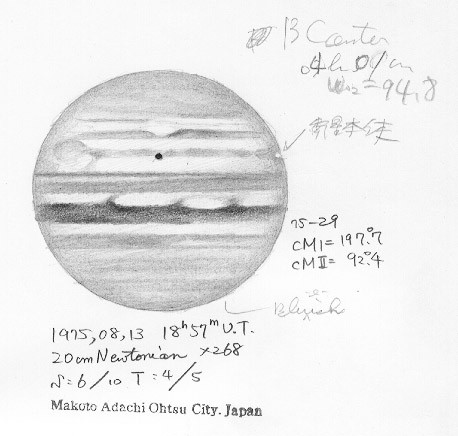 B Center
04h 01m
ω2=94.8
衛星本体
75-29
CMI=197°.7
CMII=92°.4
Bluish
1975,08,13 18h57m U.T.
20cm Newtonian ×268
S=6/10 T=4/5
Makoto Adachi Ohtsu City. Japan